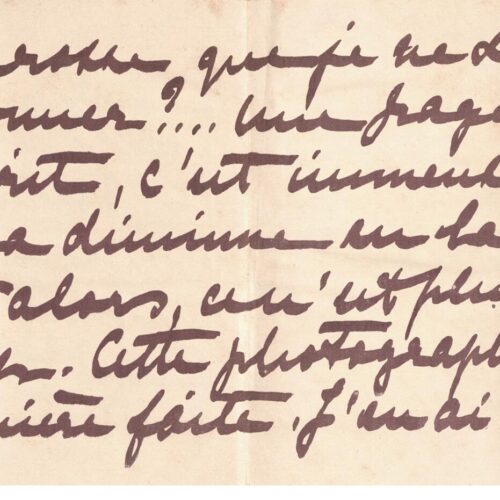 que je ne d
onner ?.... Une page
crit, c'est immens
a diminue en la
alors, ce n'est plu
Cette photograph
nière faite. J'en ai